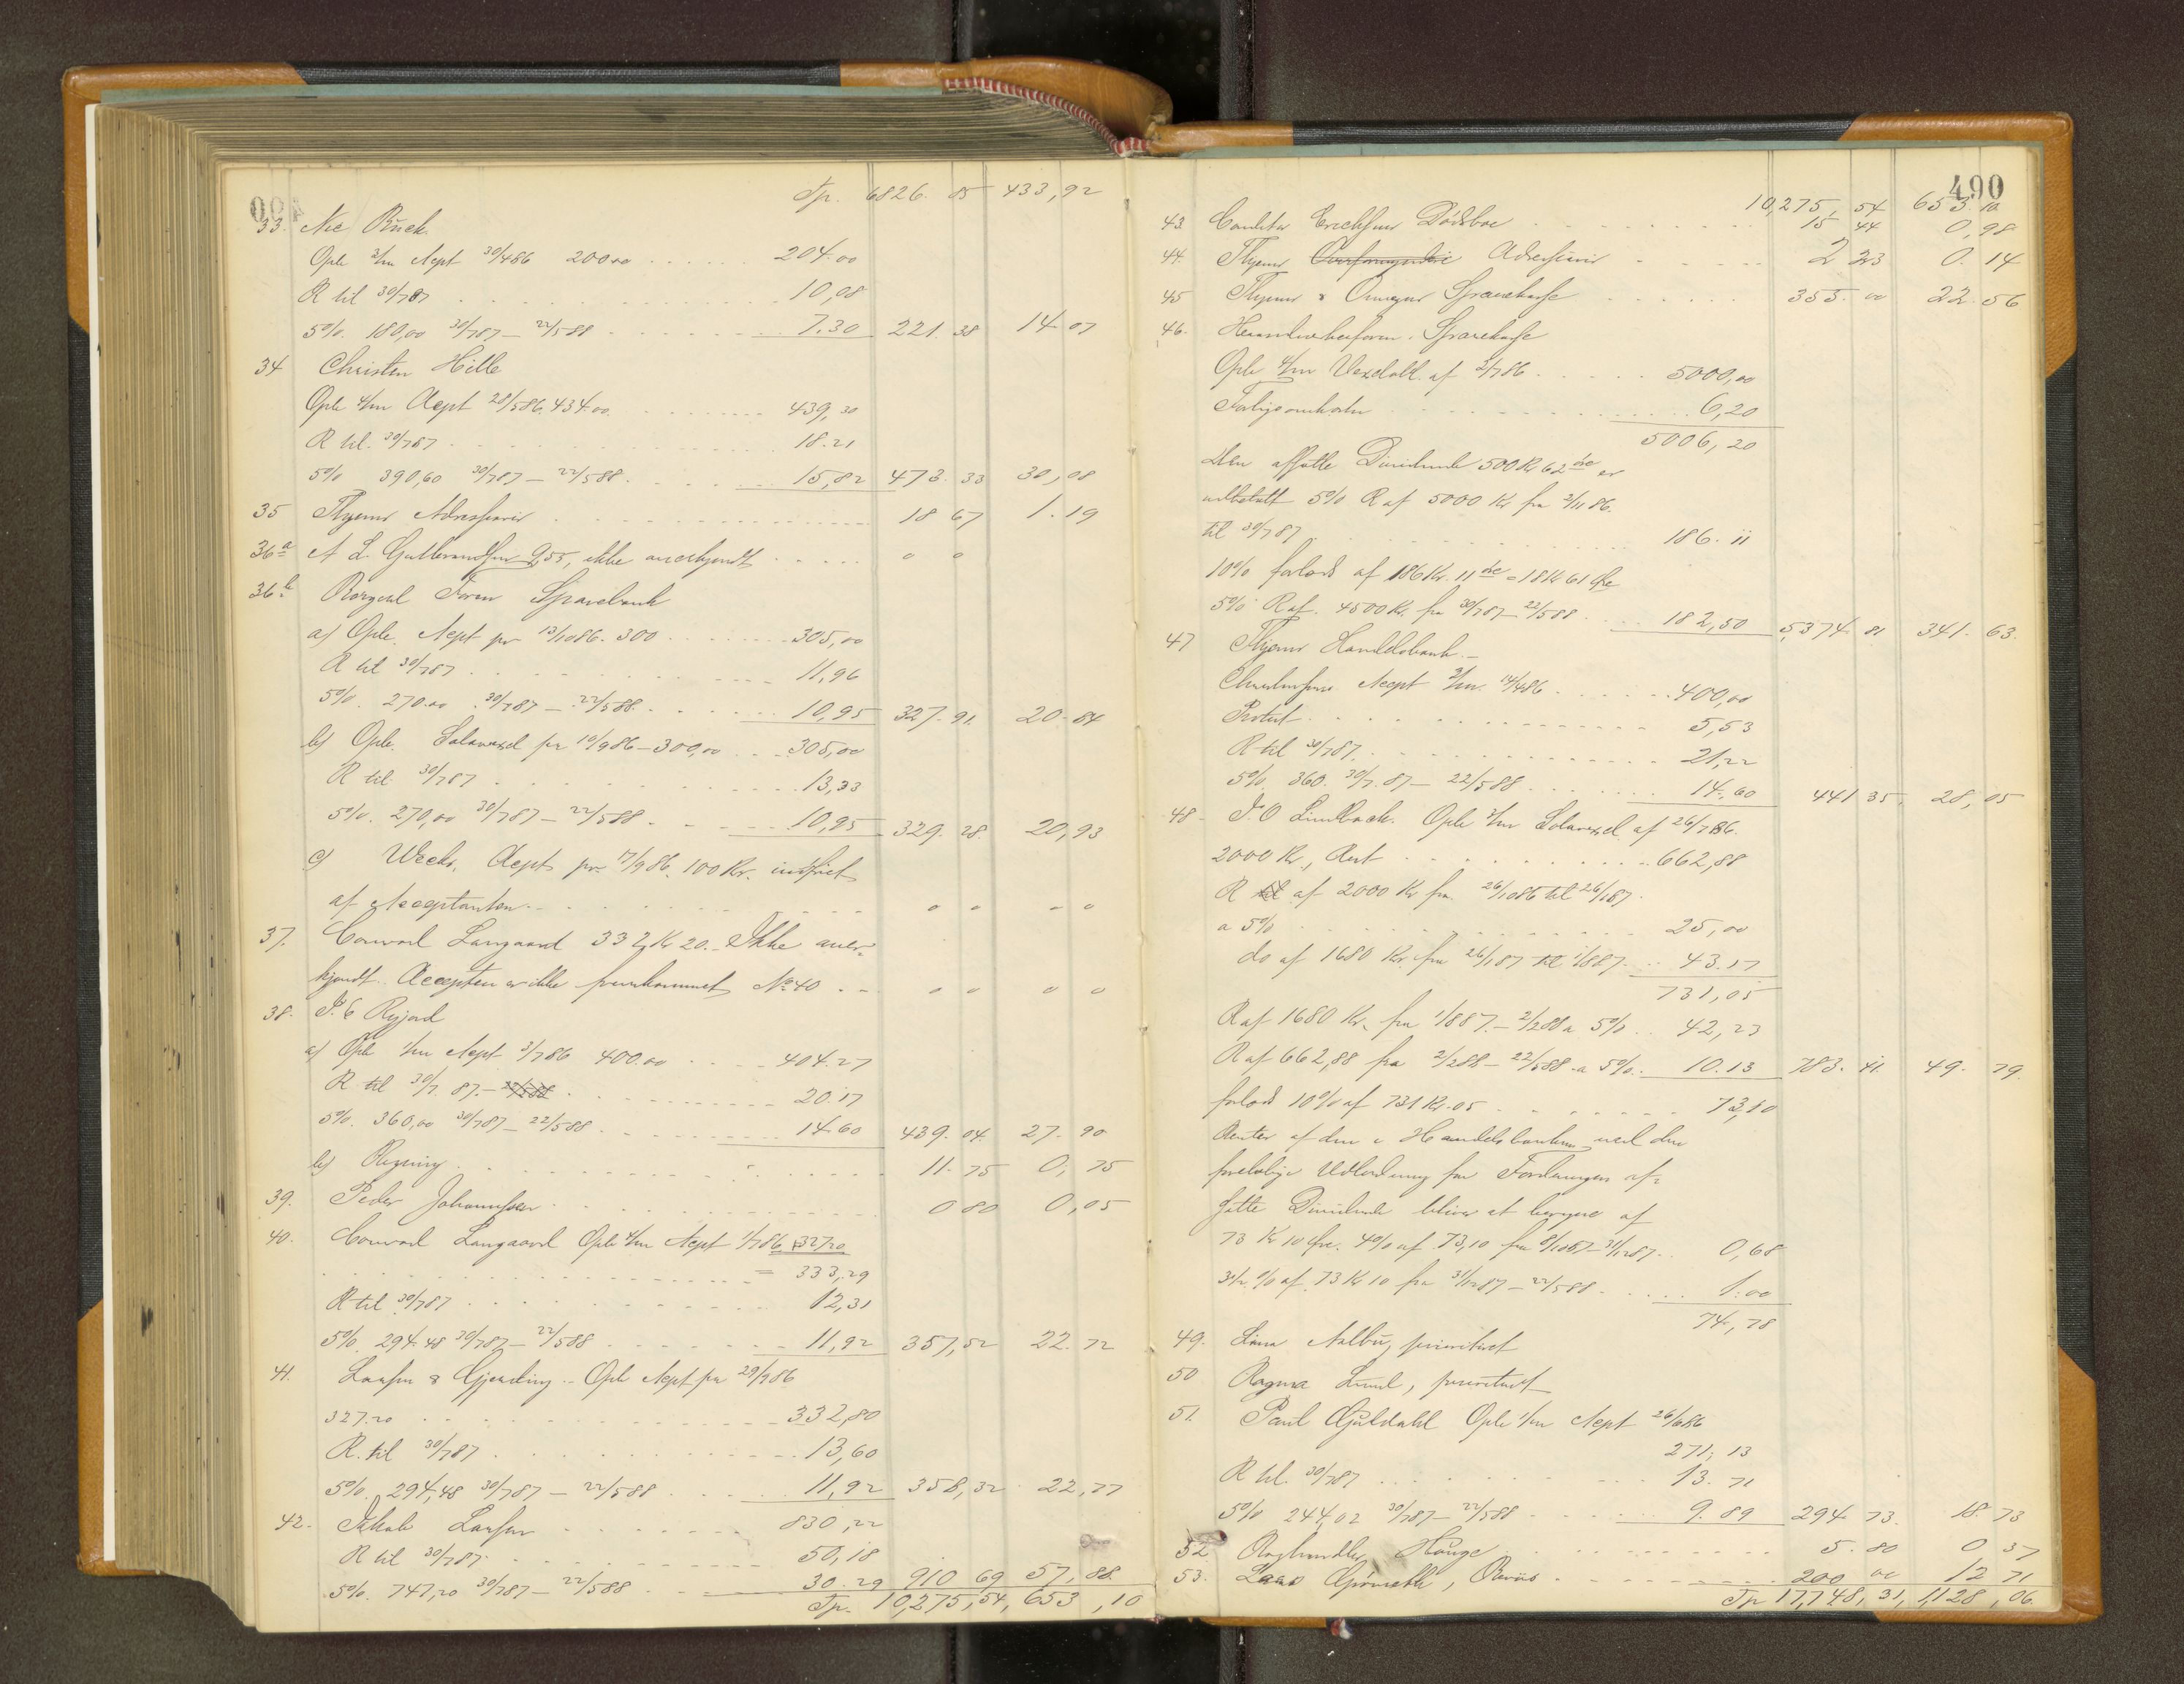 Tp. 6826. 85 433,92
33. Nic Buck
Opb 3/m Acpt 30/486 200.00 204.00
R til 30/787 10,08
5% 180,00 30/787 – 22/588 7.30 221. 38 14.07
34 Christen Hille
Opb 4/m Acpt 28/586, 434.00. 439,30
R til. 30/787 18.21
5% 390,60 30/787 – 22/588. 15,82 473. 33 30,08
35 Thjems Adressavis 18 67 1.19
36a A L Gulbrandsen 955, ikke anerkjendt o o
36b. Sparebank
a) Opb. Acpt pr 13/1086. 300 305,00
R til 30/787 11,96
5%. 270.00 30/787 – 22/588. 10,95 327.91. 20.84
b) Opb. Solavexel pr 10/986 – 300,00 305,00
R til 30/787 13,33
5%. 270,00 30/787 – 22/588. 10,95 329. 28. 20,93
c) Acpt pr. 17/986. 100 Kr. indfriet
af Acceptanten. o o o
37. Conrad Langaard 332 Kr 20. – Ikke aner-
kjendt. Accepten er ikke fremkommet No 40 o o o o
38.
a) Opb 4/m Acpt 3/786 400.00 404.27
R til 30/7. 87. – 22/588 20.17
5%. 360,00 30/787 – 22/588 14.60 439. 04. 27. 90
b) Regning 11. 75 0,75
39. Peder Johannessen 0 80 0,05
40. Conrad Langaard Opb 4/m Acpt 1/786 332.20
= 333,29
R til 30/787 12,31
5%. 294.48 30/787 – 22/588 11,92 357,52 22.72
41. Opb Acpt pr 29/786
327.20 332,80
R. til 30/787 13,60
5%. 294,48 30/787 – 22/588 11,92 358,32 22,77
42. Jakob Larsen 830,22
R til 30/787 50,18
5%. 747,20 30/787 – 22/588 30.29 910 69 57,88.
Tp. 10,275,54, 653,10
490
10,275, 54 653.10
43. Conditor Erichsens Dødsbo 15 44 0,98
44. Thjems Overformynderi Adressavis 2 23 0.14
45 Thjems & Omegns Sparekasse 355.00 22.56
46. Haandverkerforen. Sparekasse
Opb 4/m Vexelobl. af 2/786. 5000,00
6,20
5006,20
Den afsatte Dividende 500 Kr 62 øre er
udbetalt 5% R af 5000 Kr fra 2/1186.
til 30/787 186.11
10% forlods af 186 Kr. 11 øre = 18 Kr 61 Øre
5% R af. 4500 Kr. fra 30/787 – 22/588 182,50 5,374. 81 341. 63.
47 Thjems Handelsbank. –
Acept 3/m. 14/486 400,00
Protest 5,53
R til 30/787. 21,22
5% 360. 30/7.87 – 22/588 14.60 441 35. 28,05
48 – Opb 3/m Solavexel af 26/786.
2000 Kr., Rest 662,88
R til af 2000 Kr fra 26/1086 til 26/187.
a 5% 25,00
do af 1680 Kr. fra 26/187 til 1/887 43.17
731,05
R af 1680 Kr. fra 1/887. – 2/288 a 5% 42,23
R af 662,88 fra 2/288 – 22/588 a 5%. 10.13 783. 41. 49. 79.
forlods 10% af 731 Kr. 05 73,10
Renter af den i Handelsbanken ved den
foreløbige Udlodning for Fordringen af-
satte Dividende bliver at beregne af
73 Kr 10 Øre. 4% af 73,10 fra 8/1087 – 31/1287. 0,68
3½ % af 73 Kr 10 fra 31/1287 – 22/588 1.00
74,78
49. Aalbu, prioritert
50 Ragna Lund, prioritert
51. Paul Guldahl Opb 4/m Acpt 26/686
271,13
R til. 30/787 13.71
5% 244,02 30/787 – 22/588 9.89 294. 73. 18. 73
52 Boghandler Hauge 5. 80 0 37
53. 200 00 12 71
Tp 17,748, 31, 1,128, 06.